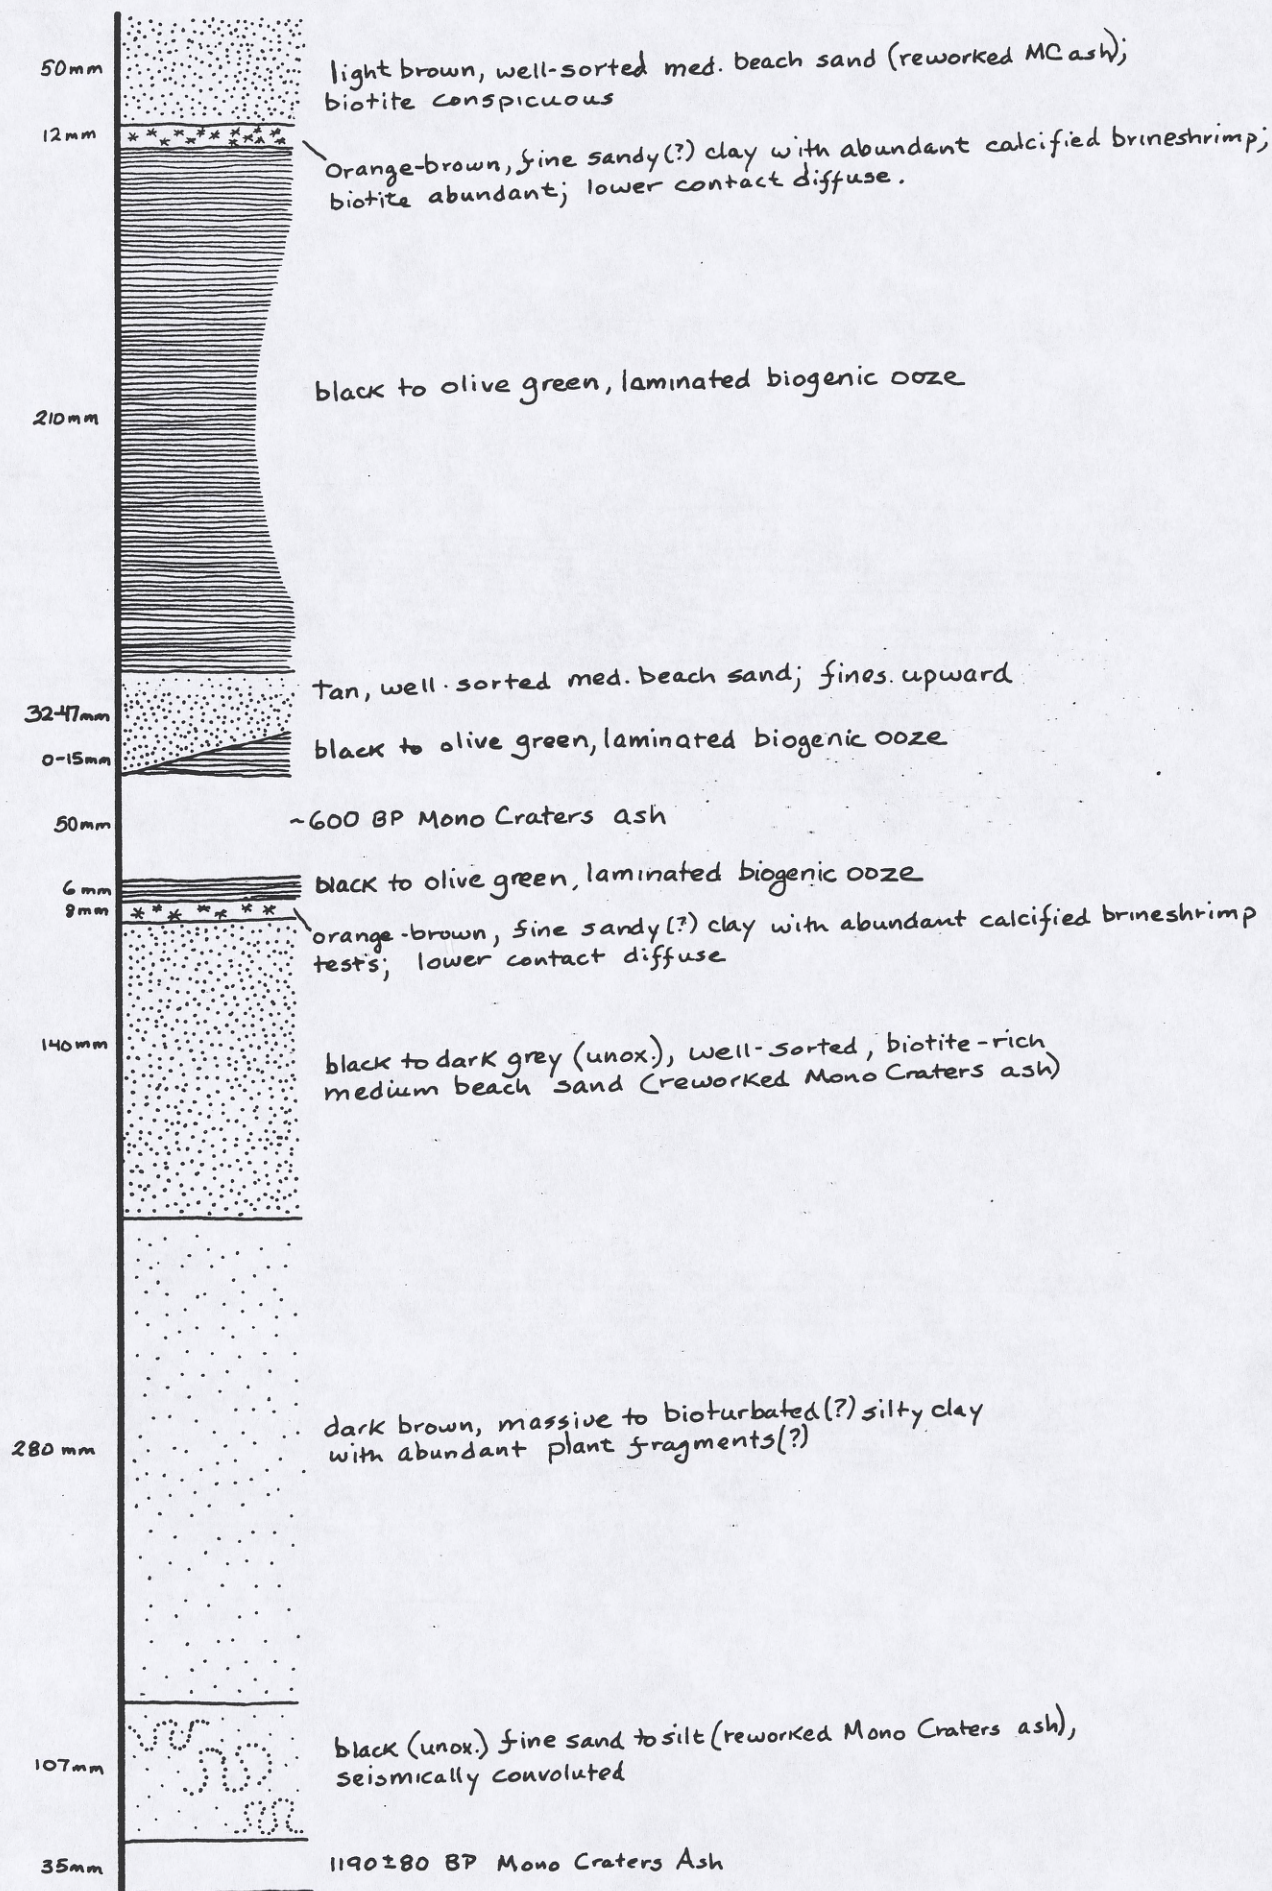 50mm
light brown, well-sorted med. beach sand (reworked MC ash);
biotite conspicuous
12mm
orange-brown, fine sandy(?) clay with abundant calcified brineshrimp;
biotite abundant; lower contact diffuse.
black to olive green, laminated biogenic ooze
210mm
tan, well-sorted med. beach sand; fines upward
32-47mm
black to olive green, laminated biogenic ooze
0-15mm
50mm
~600 BP Mono Craters ash
6mm
black to olive green, laminated biogenic ooze
8mm
orange-brown, fine sandy(?) clay with abundant calcified brineshrimp
tests; lower contact diffuse
140mm
black to dark grey (unox.), well-sorted, biotite-rich
medium beach sand (reworked Mono Craters ash)
dark brown, massive to bioturbated(?) silty clay
280 mm
with abundant plant fragments(?)
black (unox.) fine sand to silt (reworked Mono Craters ash),
107mm
seismically convoluted
35mm
1190±80 BP Mono Craters Ash